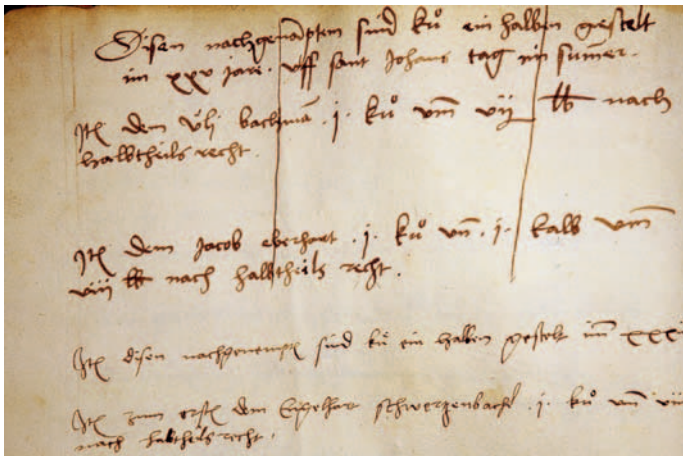 Disen nachgenāptem sind kuͦ ein halben gestelt
im xxv jare. vff sant Johans tag im sumer.
Itē dem vͦli bachmā .j. kuͦ vm̄ vij lb nach
halbtheils recht.
Itē dem Jacob eberhart .j. kuͦ vn̄ .j. kalb vm̄
viij lb nach halbtheils recht.
Itē disen nachgenempt sind kuͦ ein halben gestelt im xxx
Itē zum erstē dem schwerzenbach .j. kuͦ vm̄ vij
nach halbtheils recht.